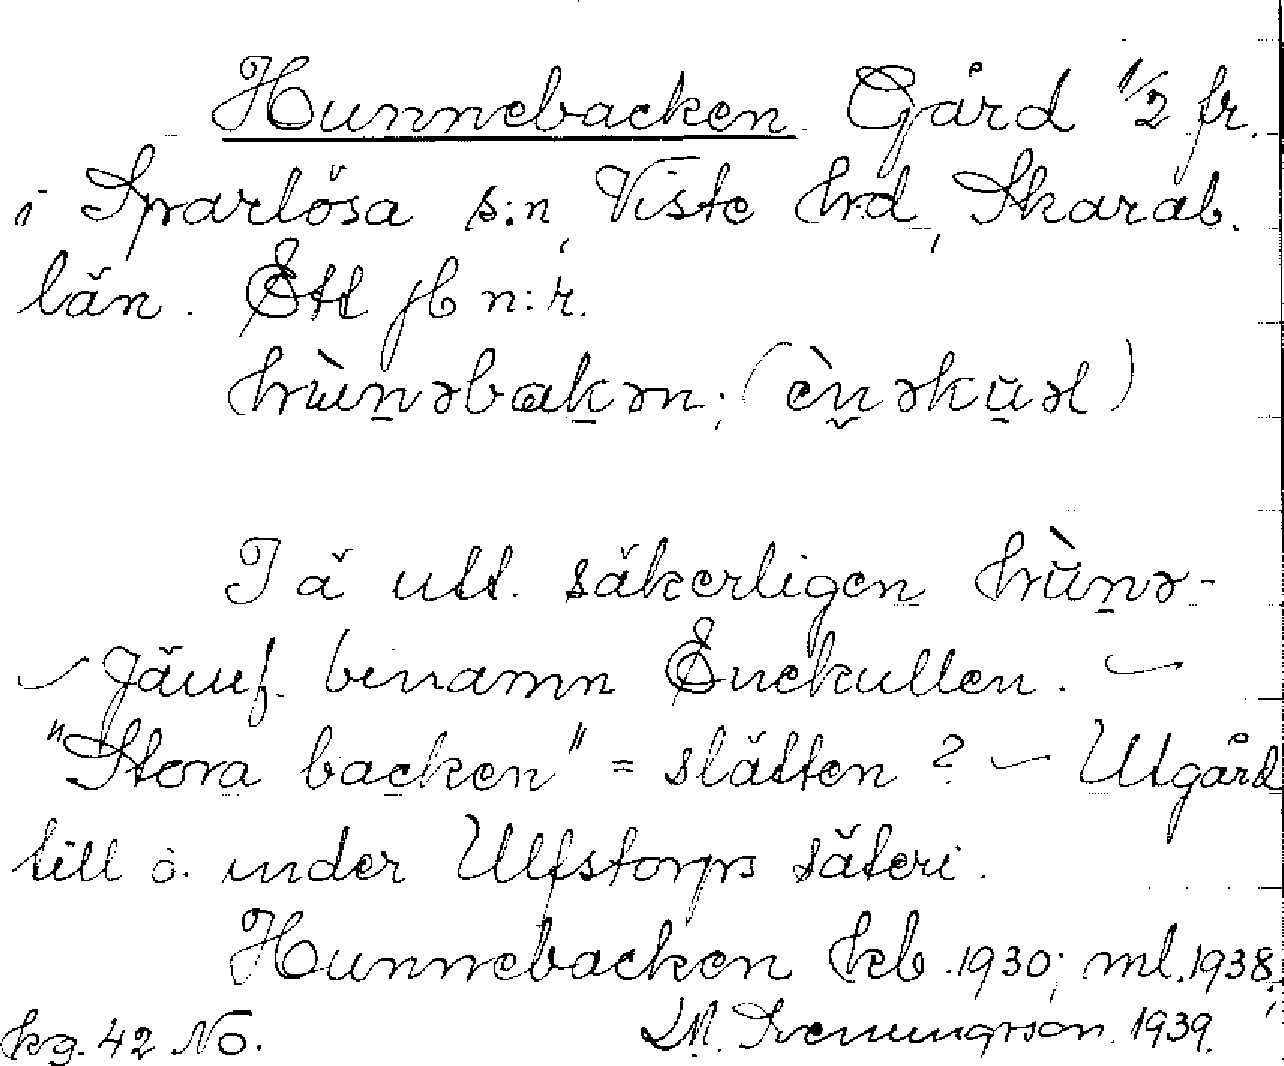 Hunnebacken Gård 1/2 fr.
i Sparlösa s:n, Viste hrd, Skarab.
län. Ett jb n:r.
hùnəbakən; (ènəkuəl)
I ä utt. säkerligen hùnə-
– Jämf. binamn Enekullen. –
"Stora backen" = slätten? – Utgård
till ö. under Ulfstorps säteri.
Hunnebacken kb. 1930; ml. 1938;
kg. 42 NO. 1939.